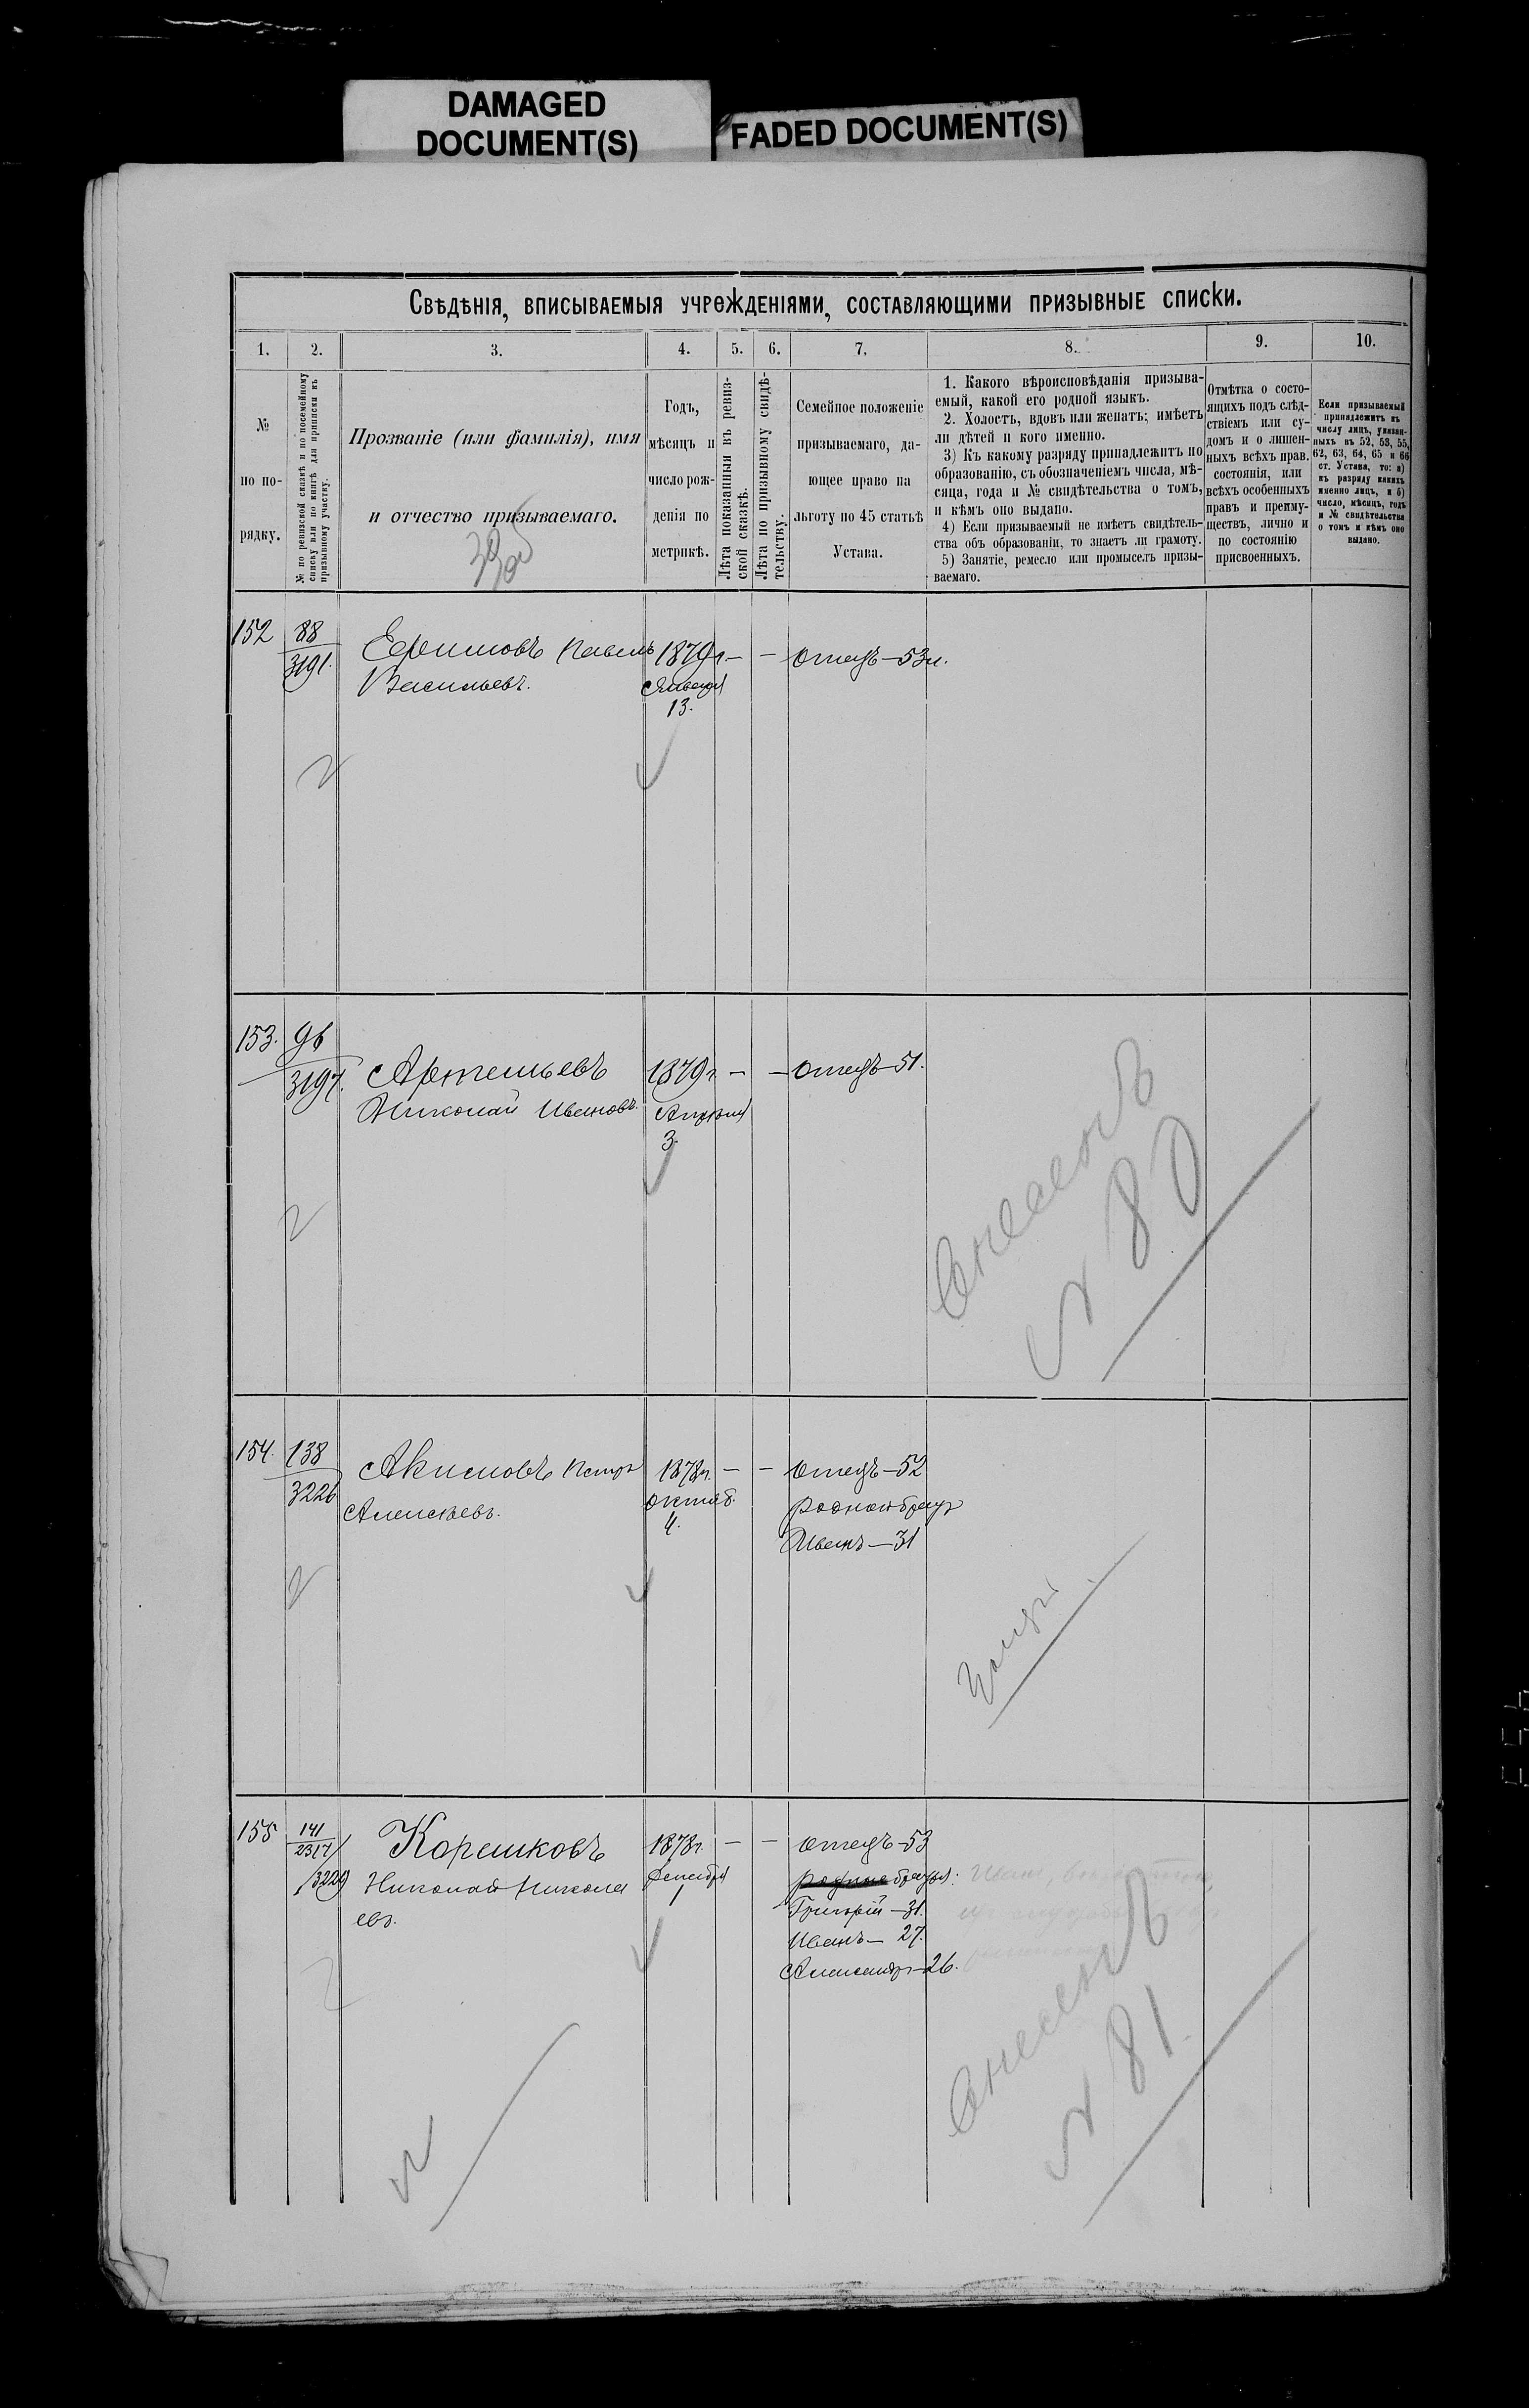 DAMAGED
DOCUMENT(S)
FADED DOCUMENT(S)
Свѣдѣнія, вписываемыя учрежденіями, составляющими призывные списки.
1. 2. 3. 4. 5. 6. 7. 8. 9. 10.
№
по по-
рядку.
№ по ревизской сказкѣ и по посемейному
списку или по книгѣ для приписки къ
призывному участку.
Прозваніе (или фамилія), имя
и отчество призываемаго.
Годъ,
мѣсяцъ и
число рож-
денія по
метрикѣ.
Лѣта показанныя въ ревиз-
ской сказкѣ.
Лѣта по призывному свидѣ-
тельству.
Семейное положеніе
призываемаго, да-
ющее право на
льготу по 45 статьѣ
Устава.
1. Какого вѣроисповѣданія призыва-
емый, какой его родной языкъ.
2. Холостъ, вдовъ или женатъ; имѣетъ
ли дѣтей и кого именно.
3) Къ какому разряду принадлежитъ по
образованію, съ обозначеніемъ числа, мѣ-
сяца, года и № свидѣтельства о томъ,
и кѣмъ оно выдано.
4) Если призываемый не имѣетъ свидѣтель-
ства объ образованіи, то знаетъ ли грамоту.
5) Занятіе, ремесло или промыселъ призы-
ваемаго.
Отмѣтка о состо-
ящихъ подъ слѣд-
ствіемъ или су-
домъ и о лишен-
ныхъ всѣхъ правъ
состоянія, или
всѣхъ особенныхъ
правъ и преиму-
ществъ, лично и
по состоянію
присвоенныхъ.
Если призываемый
принадлежитъ къ
числу лицъ, указан-
ныхъ въ 52, 53, 55,
62, 63, 64, 65 и 66
ст. Устава, то: а)
къ разряду какихъ
именно лицъ, и б)
число, мѣсяцъ, годъ
и № свидѣтельства
о томъ и кѣмъ оно
выдано.
152 88
3191.
Ефимовъ Павелъ
Васильевъ.
1879г.
Января
13.
— —
отецъ—53л.
153. 96
3197.
Артемьевъ
Николай Ивановъ.
1879г.
Апрѣля
3.
— —
отецъ—51.
Внесенъ
№ 80
154. 138
3226
Акимовъ Петръ
Алексѣевъ.
1878г.
октяб.
4.
— —
отецъ—52
родной братъ
Иванъ—31
155 141
2317
3229
Корешковъ
Николай Никола
евъ.
1878г.
Декабря
1
— —
отецъ—53
родные братья:
Григорій—31.
Иванъ—27.
Александръ—26.
Внесенъ
№ 81